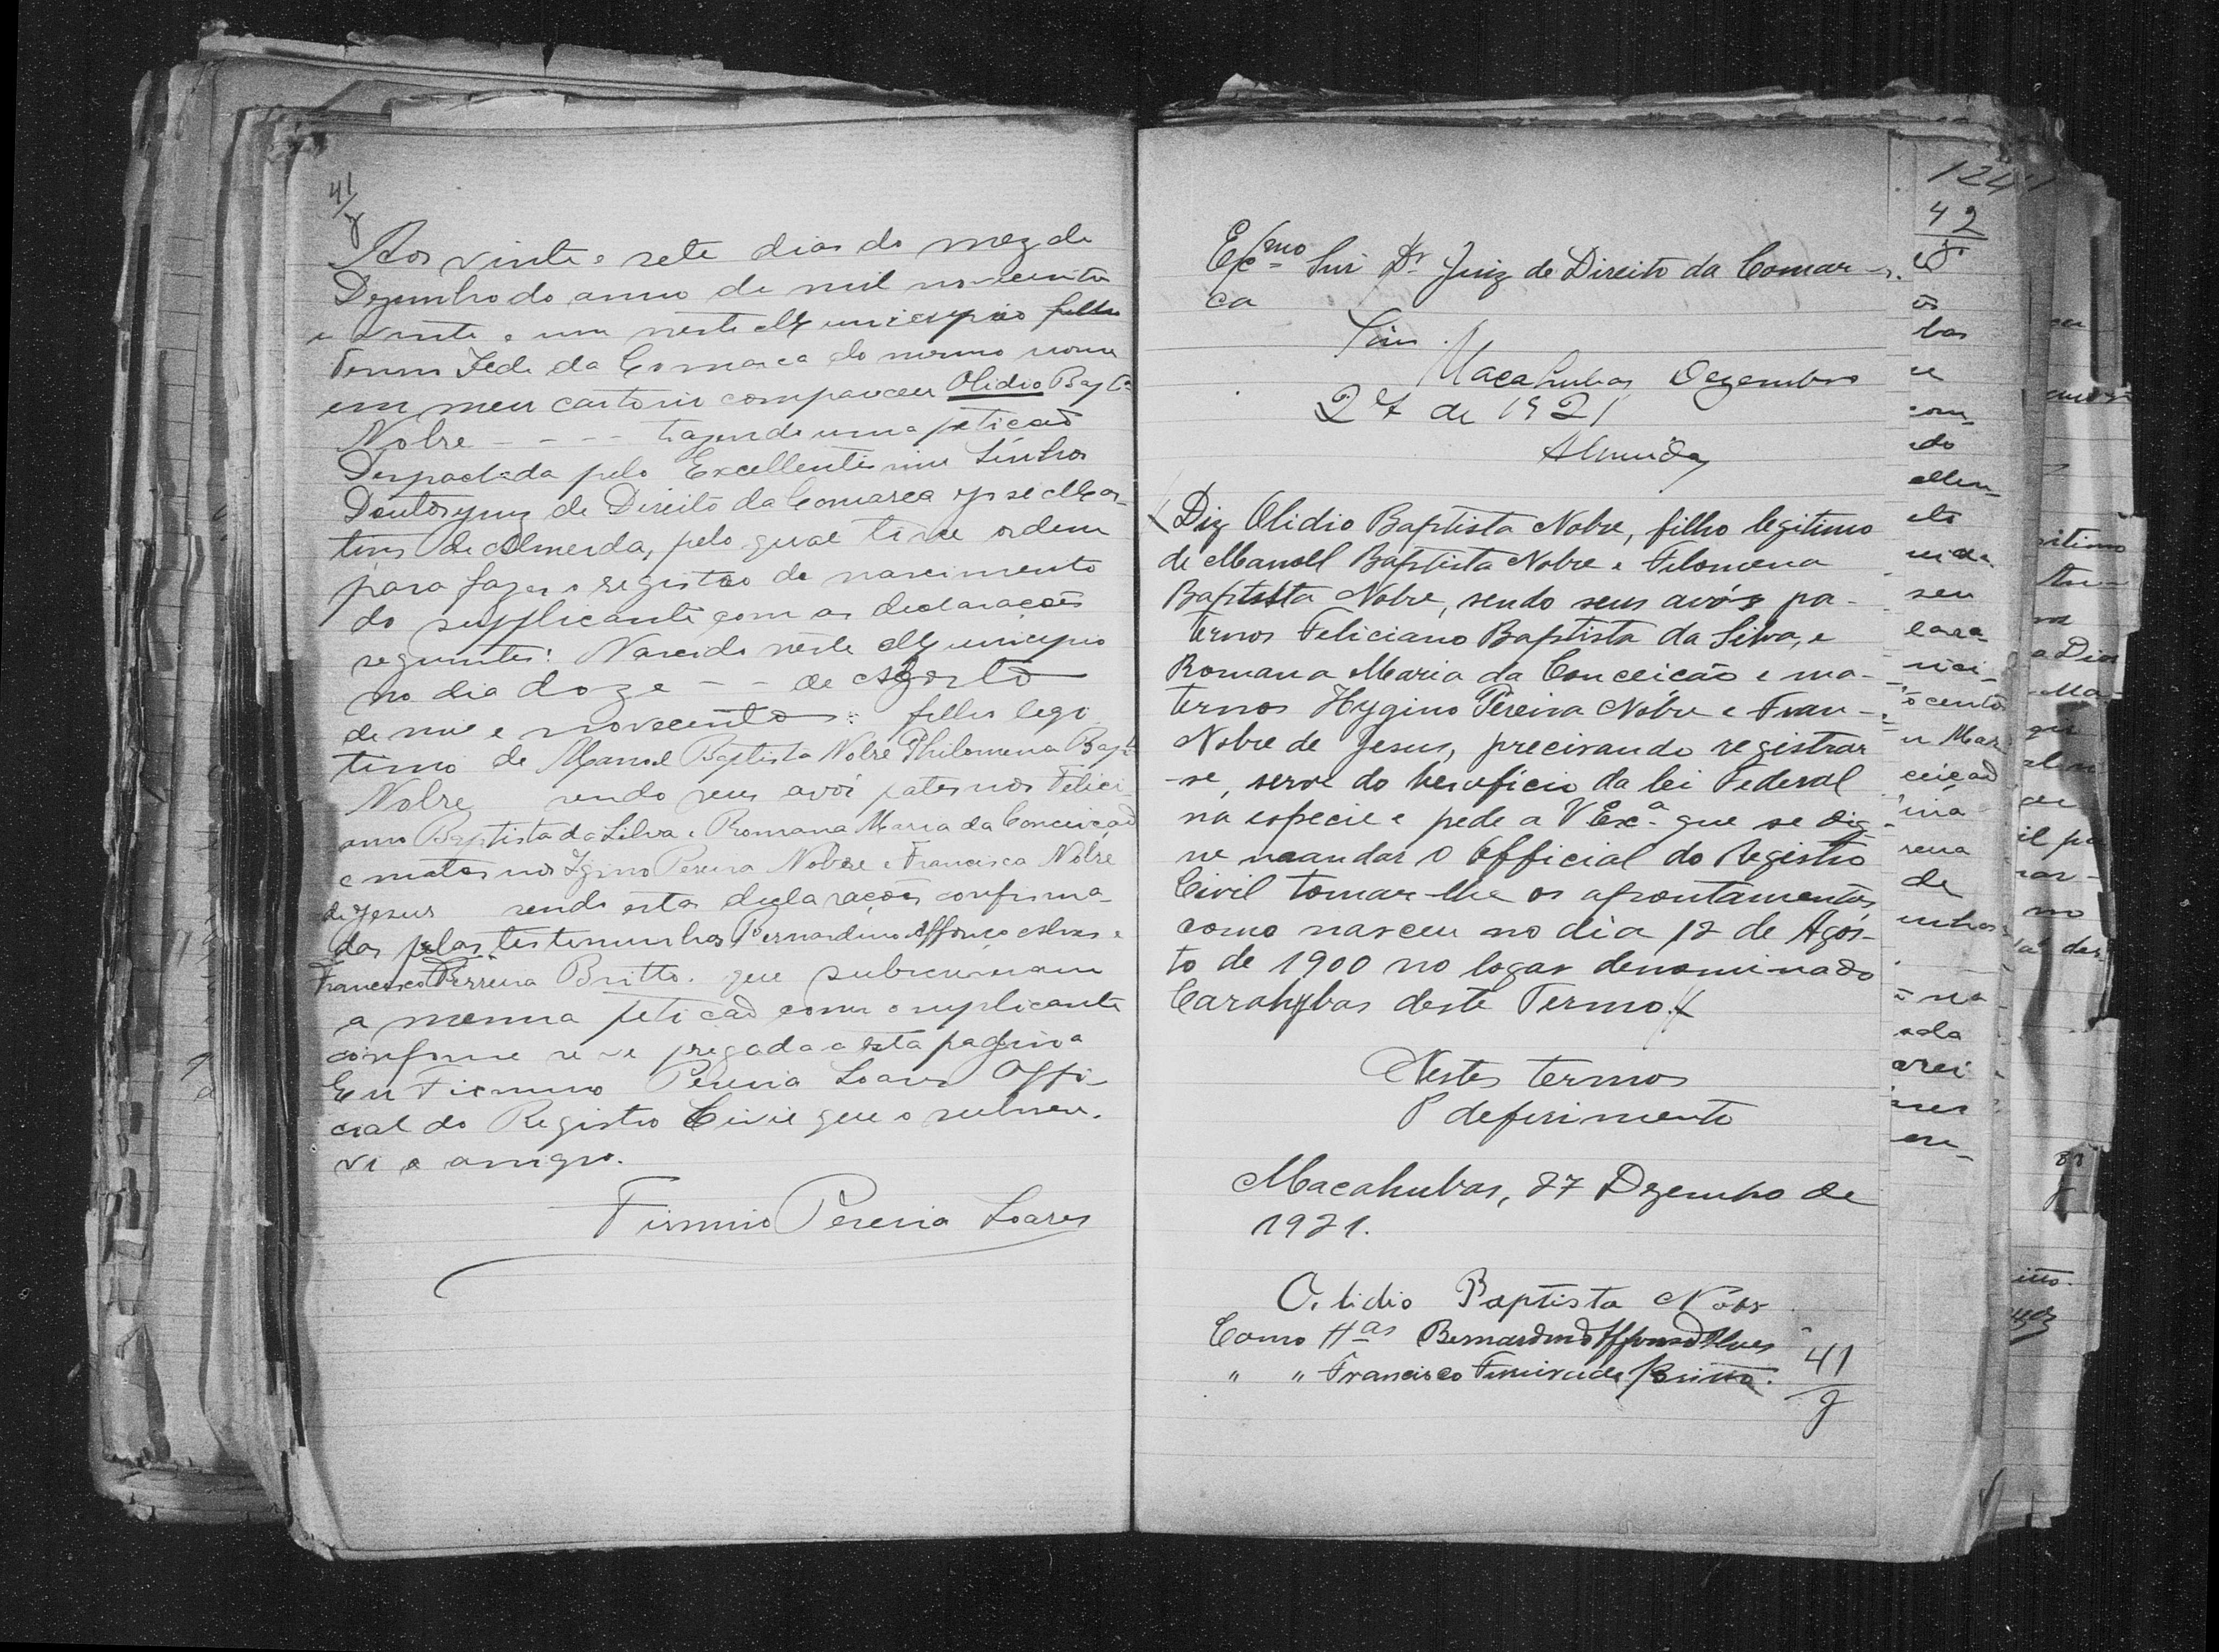 41
Aos vinte e sete dias do mez de
Dezembro do anno de mil novecentos
e vinte e um neste Municipio
Termo Sede da Comarca do mesmo nome
em meu cartorio compareceu Olidio Bapta
Nobre - - - - trazendo uma petição
Despachada pelo Excellentissimo Senhor
Doutor Juiz de Direito da Comarca
de Almeida, pelo qual tive ordem
para fazer o registro de nascimento
do supplicante com as declarações
seguintes: Nascido neste Municipio
no dia doze - - de Agosto
de mil e novecentos: filho legi
timo de Manoel Baptista Nobre Philomena Bapta
Nobre sendo seus avós paternos Felici
ano Baptista da Silva e Romana Maria da Conceição
e maternos Igino Pereira Nobre e Francisca Nobre
de Jesus sendo estas declarações confirma
das pelas testemunhas Bernardino Affonço Alves e
Francisco Ferreira Britto. que subscreveram
a mesma petição com o supplicante
conforme se ve pregada a esta pagina
Eu Firmino Pereira Soares Offi-
cial do Registro Civil que o subscre.
vi e assigno.
Firmino Pereira Soares
Excmo Snr Dr Juiz de Direito da Comar-
ca
Sim.
Macahubas Dezembro
27 de 1921
Almeida
Diz Olidio Baptista Nobre, filho legitimo
de Manoel Baptista Nobre e Filomena
Baptista Nobre, sendo seus avós pa-
ternos Feliciano Baptista da Silva, e
Romana Maria da Conceicão e ma-
ternos Hygino Pereira Nobre e Fran-
Nobre de Jesus, precisando registrar
-se, serve do beneficio da lei Federal
na especie e pede a V Exca que se dig
ne mandar o Official do Registro
Civil tomar-lhe os apontamentos,
como nasceu no dia 12 de Agos-
to de 1900 no logar denominado
Carahybas deste Termo.
Nestes termos
P deferimento
Macahubas, 27 Dezembro de
1921.
Olidio Baptista Nobr
Como ttas Bernardino Affonso Alves
" " Francisco Ferreira de Britto.
41
124
42